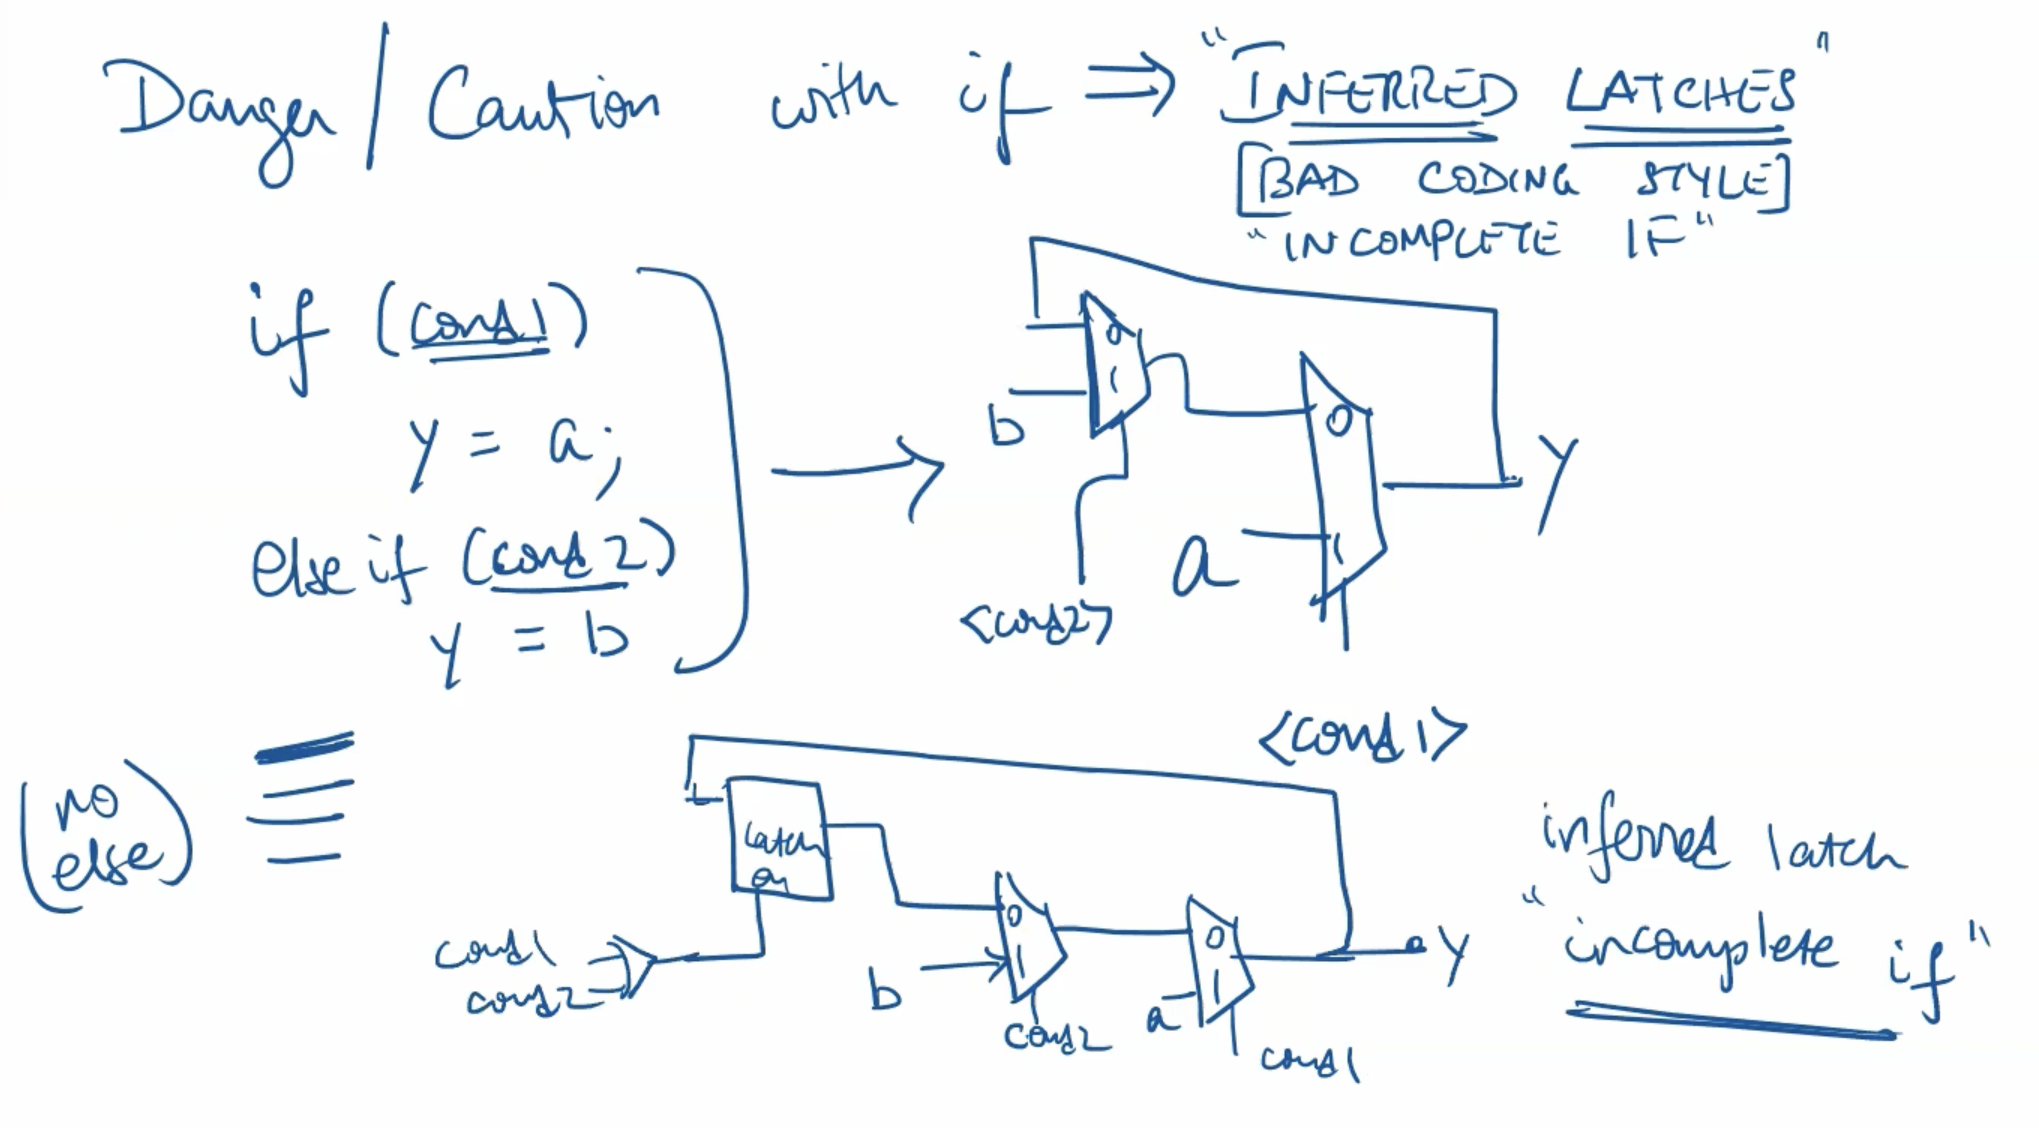 Danger / Caution with if ⇒ "INFERRED LATCHES"
[BAD CODING STYLE]
"INCOMPLETE IF"
if (cond1)
y = a;
else if (cond2)
y = b
0
1
b
<cond2>
0
1
a
y
<cond1>
(no
else)
latch
en
cond1
cond2
0
1
b
cond2
0
1
a
cond1
y
inferred latch
"incomplete if"